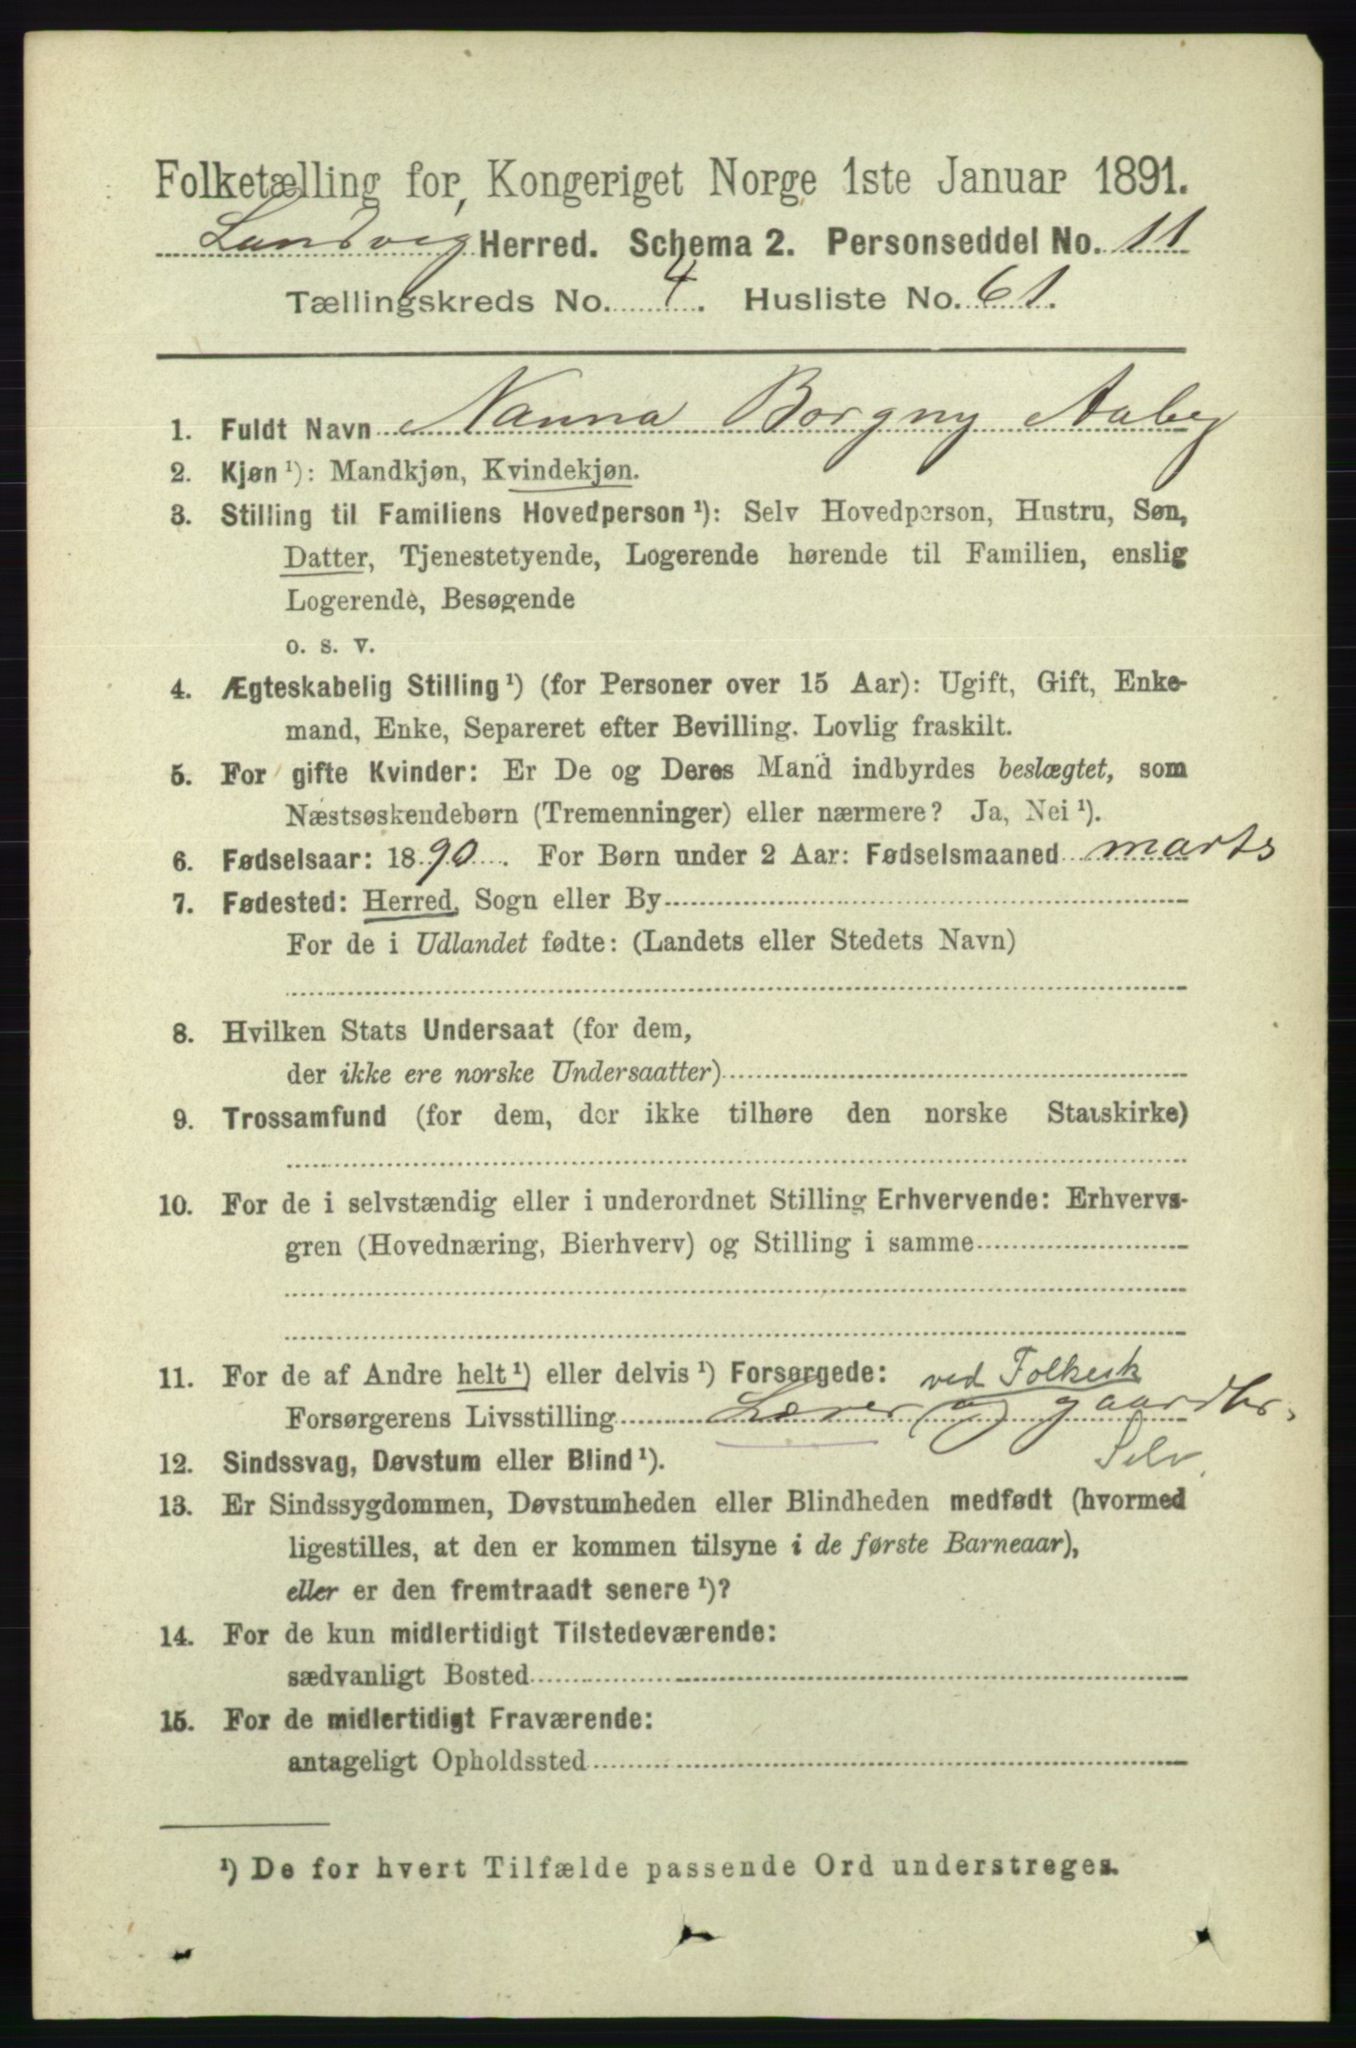 Folketælling for Kongeriget Norge 1ste Januar 1891.
Landvig Herred. Schema 2. Personseddel No. 11
Tællingskreds No. 4. Husliste No. 61.
1. Fuldt Navn Nanna Borgny Aaby
2. Kjøn ¹): Mandkjøn, Kvindekjøn.
3. Stilling til Familiens Hovedperson ¹): Selv Hovedperson, Hustru, Søn,
Datter, Tjenestetyende, Logerende hørende til Familien, enslig
Logerende, Besøgende
o. s. v.
4. Ægteskabelig Stilling ¹) (for Personer over 15 Aar): Ugift, Gift, Enke-
mand, Enke, Separeret efter Bevilling. Lovlig fraskilt.
5. For gifte Kvinder: Er De og Deres Mand indbyrdes beslægtet, som
Næstsøskendebørn (Tremenninger) eller nærmere? Ja, Nei ¹).
6. Fødselsaar: 1890. For Børn under 2 Aar: Fødselsmaaned marts
7. Fødested: Herred, Sogn eller By
For de i Udlandet fødte: (Landets eller Stedets Navn)
8. Hvilken Stats Undersaat (for dem,
der ikke ere norske Undersaatter)
9. Trossamfund (for dem, der ikke tilhøre den norske Statskirke)
10. For de i selvstændig eller i underordnet Stilling Erhvervende: Erhvervs-
gren (Hovednæring, Bierhverv) og Stilling i samme
11. For de af Andre helt ¹) eller delvis ¹) Forsørgede: ved Folkesk
Forsørgerens Livsstilling Lærer og gaardbr.
Selv
12. Sindssvag, Døvstum eller Blind ¹).
13. Er Sindssygdommen, Døvstumheden eller Blindheden medfødt (hvormed
ligestilles, at den er kommen tilsyne i de første Barneaar),
eller er den fremtraadt senere ¹)?
14. For de kun midlertidigt Tilstedeværende:
sædvanligt Bosted
15. For de midlertidigt Fraværende:
antageligt Opholdssted
¹) De for hvert Tilfælde passende Ord understreges.